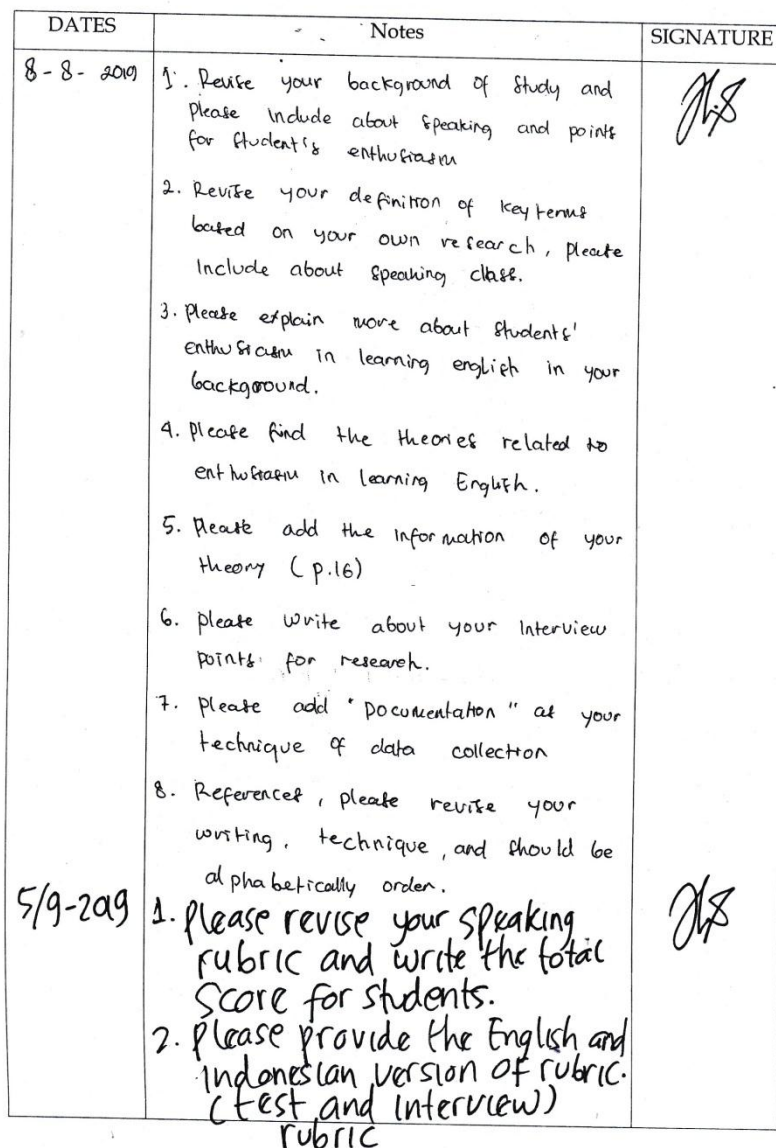 DATES Notes SIGNATURE
8-8-2019 1. Revise your background of study and
please include about speaking and points
for student's enthusiasm
2. Revise your definition of key terms
based on your own research, please
include about speaking class.
3. please explain more about students'
enthusiasm in learning english in your
background.
4. please find the theories related to
enthusiasm in learning English.
5. Please add the information of your
theory (p.16)
6. please write about your interview
points for research.
7. please add "Documentation" as your
technique of data collection
8. References, please revise your
writing, technique, and should be
alphabetically order.
5/9-2019 1. please revise your speaking
rubric and write the total
score for students.
2. please provide the English and
indonesian version of rubric.
(test and interview)
rubric